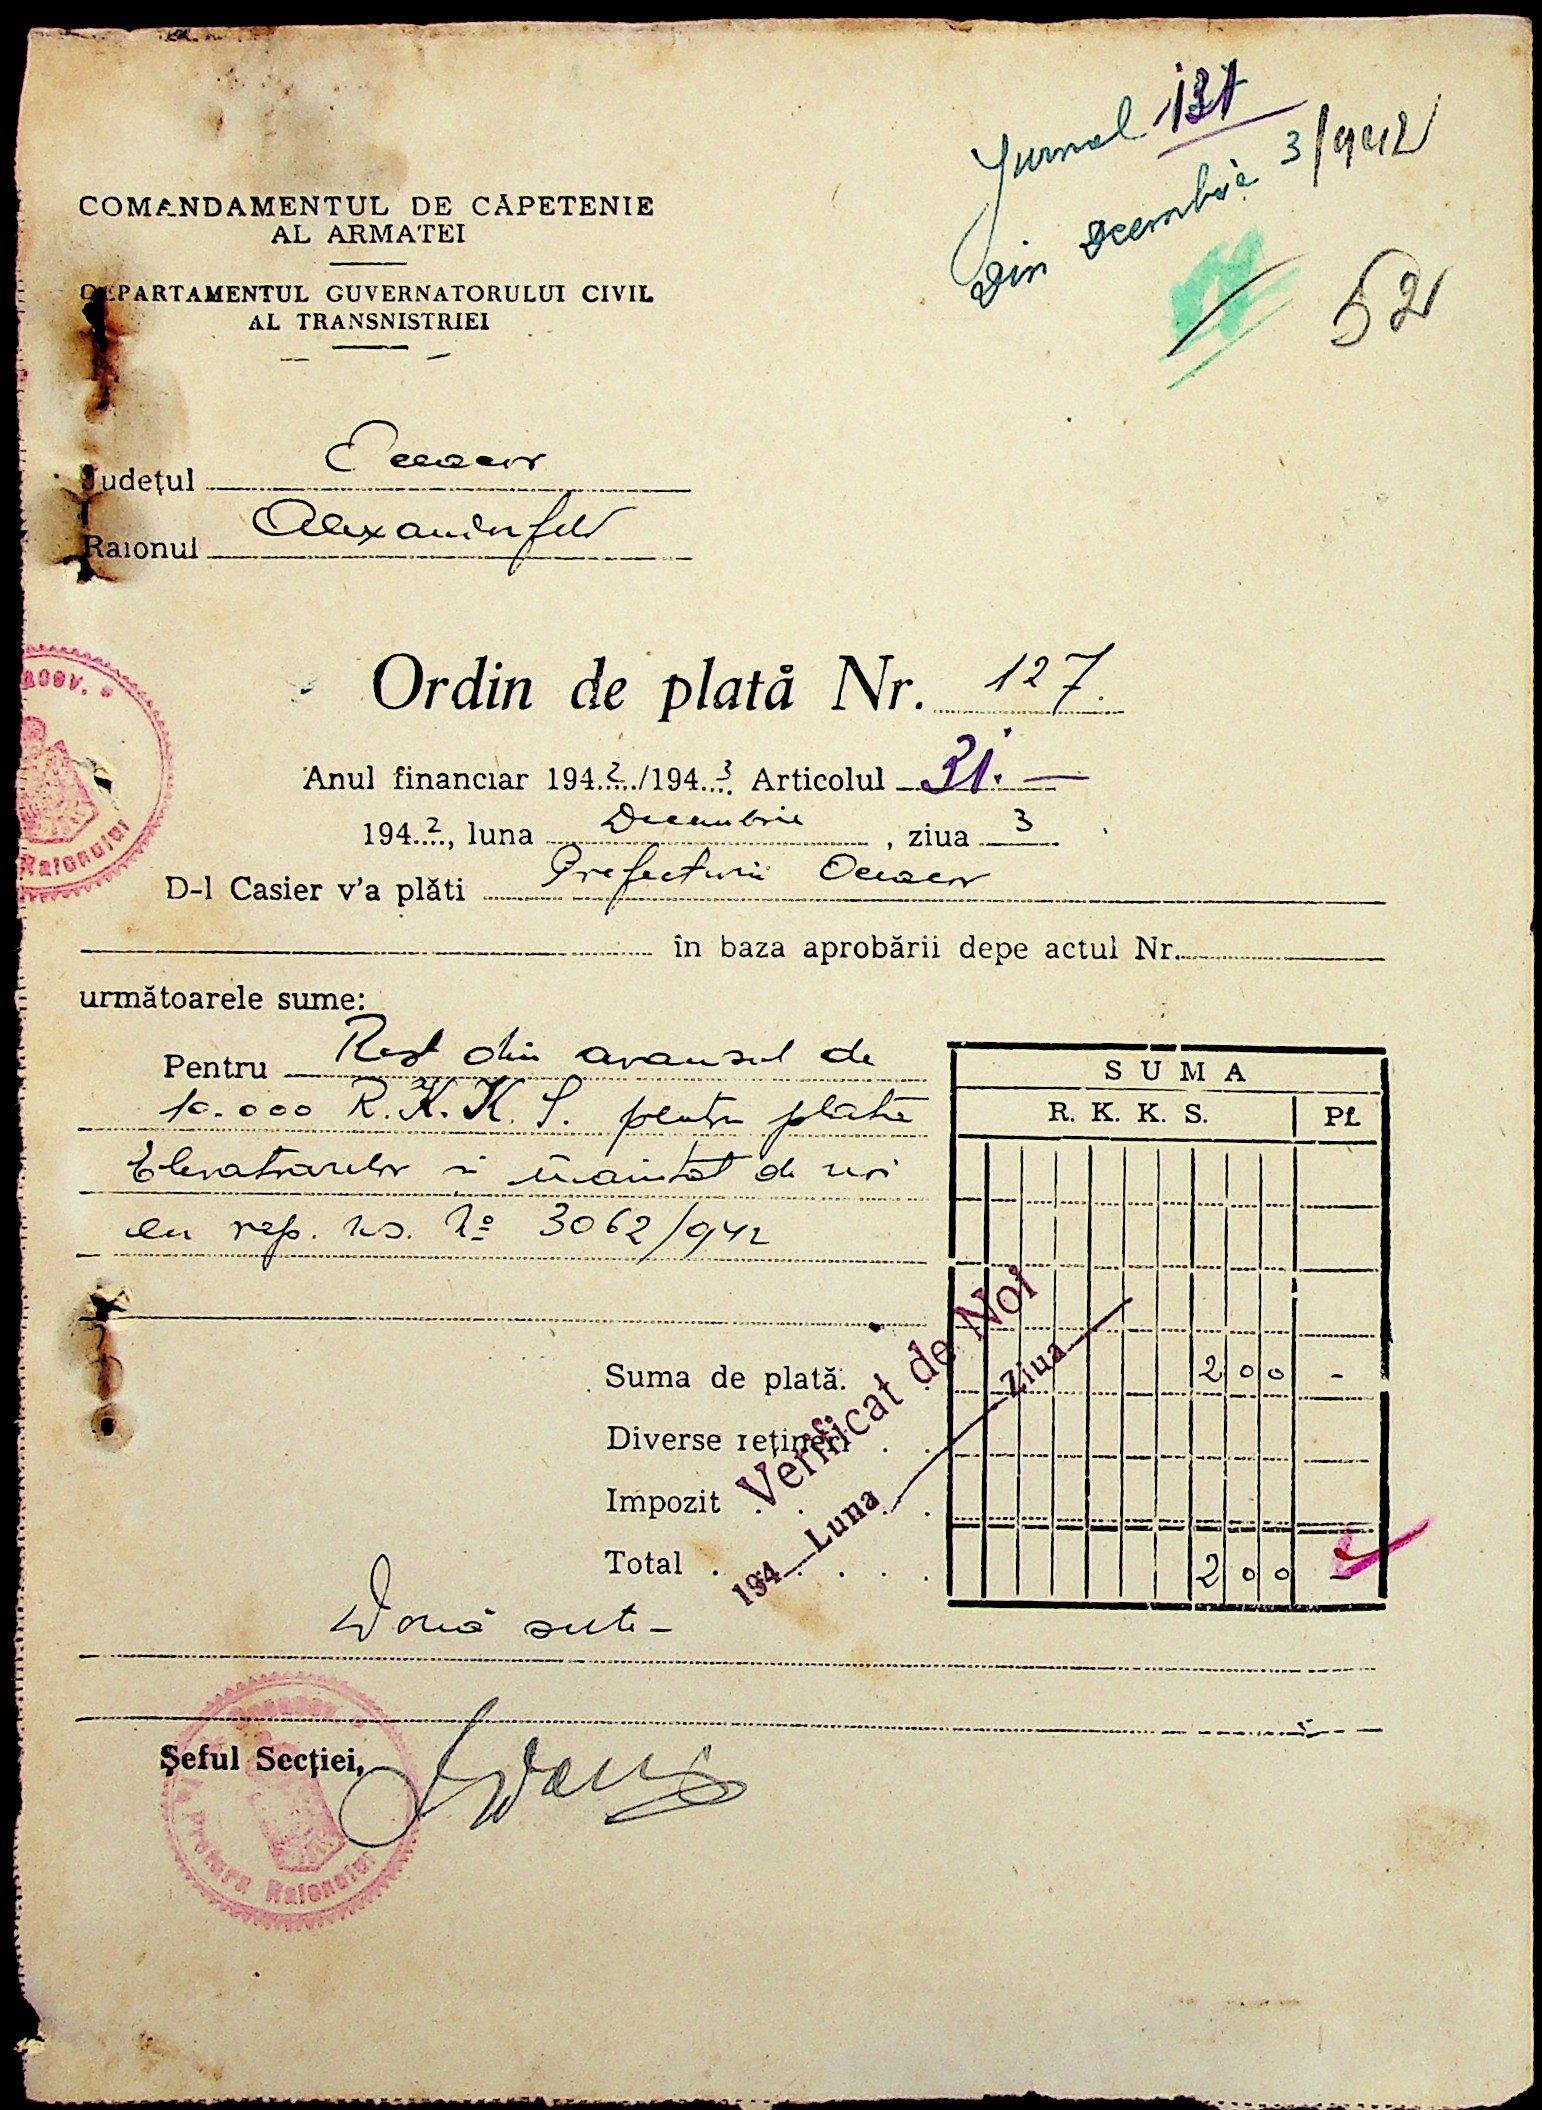 Jurnal 131
din Decembrie 3/942
52
COMANDAMENTUL DE CĂPETENIE
AL ARMATEI
DEPARTAMENTUL GUVERNATORULUI CIVIL
AL TRANSNISTRIEI
Județul Oceacov
Raionul Alexanderfeld
Ordin de plată Nr. 127.
Anul financiar 1942/1943 Articolul 31. —
1942, luna Decembrie, ziua 3
D-l Casier v'a plăti Prefecturii Oceacov
în baza aprobării depe actul Nr.
următoarele sume:
Pentru Rest din avansul de
10.000 R.K.K.S. pentru plata
și înaintat de noi
cu rap. ns. No 3062/942
SUMA
R. K. K. S. Pf.
Suma de plată. 200 -
Diverse rețineri
Impozit
Total 200 -
Verificat de Noi
194 Luna Ziua
Două sute -
Șeful Secției,
Pretura Raionului
Raionului